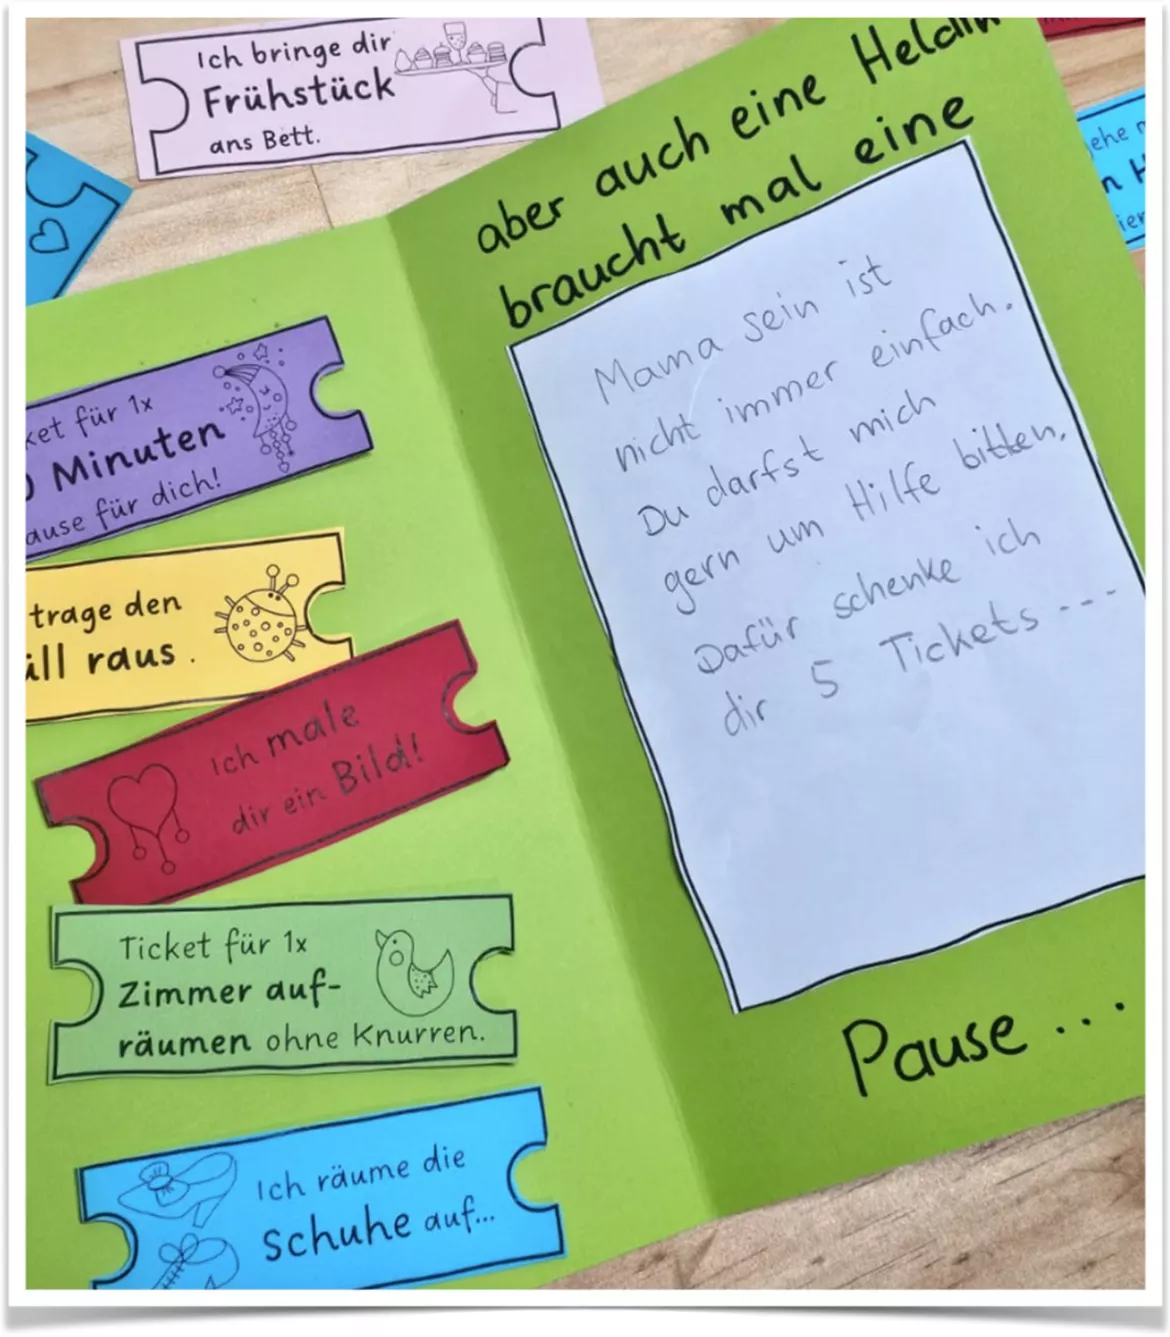 Ich bringe dir
Frühstück
ans Bett.
aber auch eine Heldin
braucht mal eine
Mama sein ist
nicht immer einfach.
Du darfst mich
gern um Hilfe bitten.
Dafür schenke ich
dir 5 Tickets ---
Pause ...
ket für 1x
Minuten
ause für dich!
trage den
üll raus.
Ich male
dir ein Bild!
Ticket für 1x
Zimmer auf-
räumen ohne Knurren.
Ich räume die
Schuhe auf...